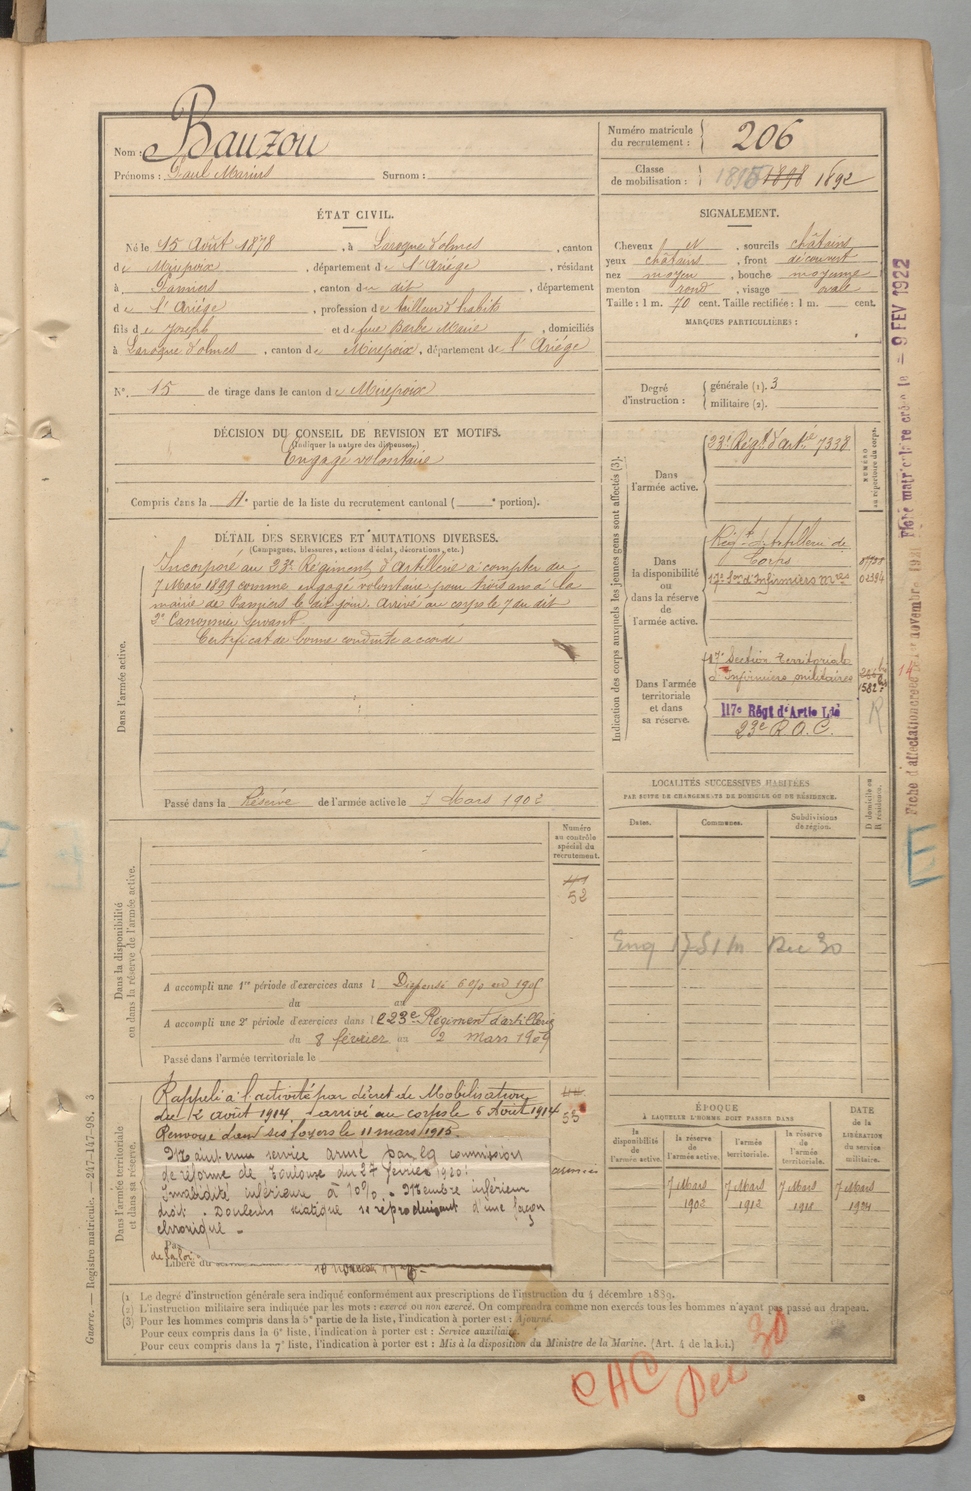 Nom : Bauzou
Prénoms : Paul Marius Surnom :
Numéro matricule du recrutement : 206
Classe de mobilisation : 1898 1892
ÉTAT CIVIL.
Né le 15 Août 1878, à Laroque d'olmes, canton
de Mirepoix, département de l'Ariége, résidant
à Pamiers, canton du dit, département
de l'Ariége, profession de tailleur d'habits
fils de Joseph et de feue Barbe Marie, domiciliés
à Laroque d'olmes, canton de Mirepoix, département de l'Ariége
N°. 15 de tirage dans le canton de Mirepoix
SIGNALEMENT.
Cheveux et, sourcils châtains
yeux châtains, front découvert
nez moyen, bouche moyenne
menton rond, visage ovale
Taille : 1 m. 70 cent. Taille rectifiée : 1 m. cent.
MARQUES PARTICULIÈRES :
Degré d'instruction : générale (1). 3
militaire (2).
DÉCISION DU CONSEIL DE REVISION ET MOTIFS.
(Indiquer la nature des dispenses.)
Engagé volontaire
Compris dans la 4e partie de la liste du recrutement cantonal ( e portion).
DÉTAIL DES SERVICES ET MUTATIONS DIVERSES.
(Campagnes, blessures, actions d'éclat, décorations, etc.)
Dans l'armée active.
Incorporé au 23e Régiment d'Artillerie à compter du
7 Mars 1899 comme engagé volontaire pour trois ans à la
mairie de Pamiers le dit jour. Arrivé au corps le 7 du dit
2e Canonnier servant.
Certificat de bonne conduite accordé
Passé dans la Réserve de l'armée active le 7 Mars 1902
Indication des corps auxquels les jeunes gens sont affectés (3).
NUMÉRO au répertoire du corps.
Dans l'armée active.
23e Régt d'artie 7338
Dans la disponibilité ou dans la réserve de l'armée active.
Régt d'Artillerie de
Corps
17e Son d'Infirmiers Mres 02394
Dans l'armée territoriale et dans sa réserve.
17e Section Territoriale
d'Infirmiers militaires
117e Régt d'Artie Lde
23e R.A.C.
R
LOCALITÉS SUCCESSIVES HABITÉES
PAR SUITE DE CHANGEMENTS DE DOMICILE OU DE RÉSIDENCE.
Dates. Communes. Subdivisions de région. D domicile ou R résidence.
17 S I M Dec 30
Dans la disponibilité ou dans la réserve de l'armée active.
Numéro au contrôle spécial du recrutement.
52
A accompli une 1re période d'exercices dans l Dispensé en 1905
du au
A accompli une 2e période d'exercices dans le 23e Régiment d'artillerie
du 8 février au 2 mars 1909
Passé dans l'armée territoriale le
Dans l'armée territoriale et dans sa réserve.
Rappelé à l'activité par décret de Mobilisation
du 2 août 1914 arrivé au corps le 6 Août 1914
Renvoyé dans ses foyers le 11 mars 1915.
Maintenu service armé par la commission
de réforme de Toulouse du 27 fevrier 1920 :
Invalidité inférieure à 10%. Membre inférieur
droit. Douleurs sciatique se reproduisant d'une façon
chronique.
de la loi
Libéré du
ÉPOQUE
À LAQUELLE L'HOMME DOIT PASSER DANS
DATE DE LA LIBÉRATION DU SERVICE MILITAIRE.
la disponibilité de l'armée active. la réserve de l'armée active. l'armée territoriale. la réserve de l'armée territoriale.
7 Mars 1902 7 Mars 1912 7 Mars 1918 7 Mars 1924
(1) Le degré d'instruction générale sera indiqué conformément aux prescriptions de l'instruction du 4 décembre 1889.
(2) L'instruction militaire sera indiquée par les mots : exercé ou non exercé. On comprendra comme non exercés tous les hommes n'ayant pas passé au drapeau.
(3) Pour les hommes compris dans la 5e partie de la liste, l'indication à porter est : Ajourné.
Pour ceux compris dans la 6e liste, l'indication à porter est : Service auxiliaire.
Pour ceux compris dans la 7e liste, l'indication à porter est : Mis à la disposition du Ministre de la Marine. (Art. 4 de la loi.)
Guerre. — Registre matricule. — 247-147-98. 3
Fiche matriculaire créée le = 9 FEV 1922
Dec 30